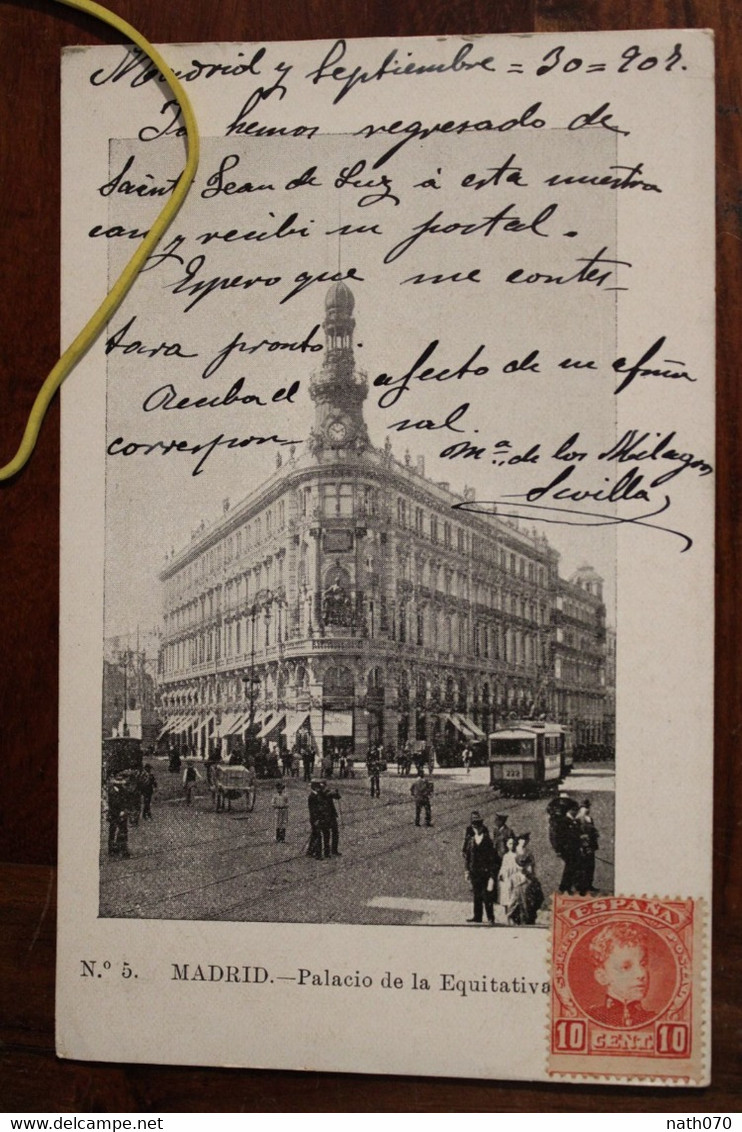 Madrid y Septiembre = 30 = 902.
Ya hemos regresado de
Saint Jean de Luz á esta nuestra
casa y recibi su postal.
Espero que me contes-
tara pronto.
Reciba el afecto de su afma
correspon- sal.
Mª de los Milagros
Sevilla
222
N.º 5. MADRID.—Palacio de la Equitativa
ESPAÑA
10 CENT. 10
nath070